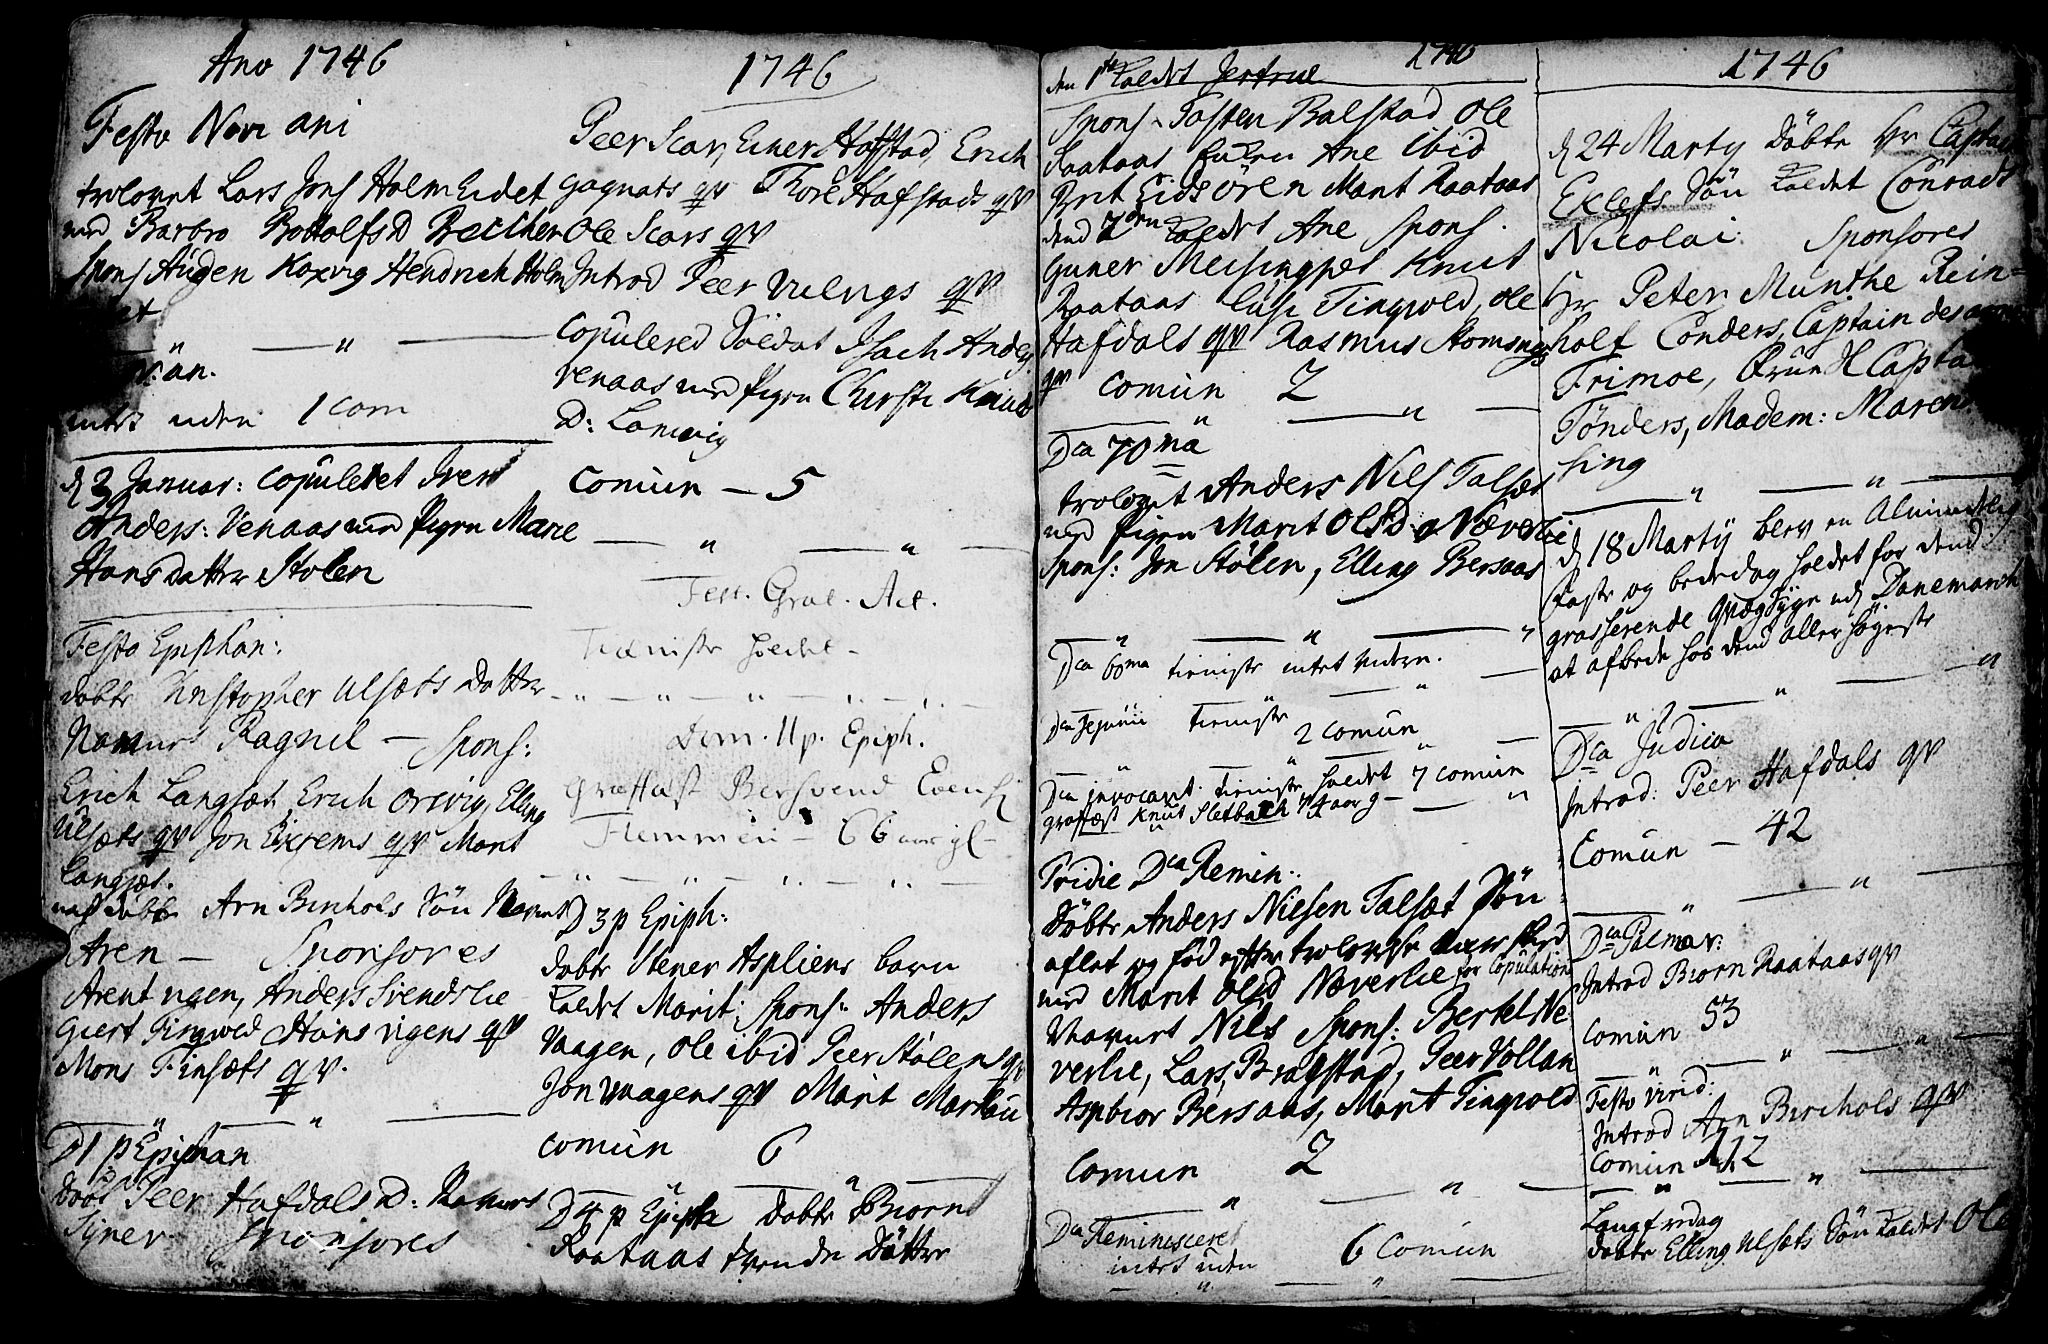 Ano 1746
Festo Novi ani
trolovet Lars Jons Holm Eidet
med Barbro Bottolfs D
Spons Augen Koxvig Hendrich Holm
et
intet uden 1 Com
d 3 Januar: copuleret Iver
Anders: Venaas med Pigen Marie
Hans datter Stolen
Festo Epiphan:
døbte Christopher Ulsæts Datter
Navnet Ragnil — Spons:
Erich Langsæt Erich Orsvig Elling
Ulsæts qv Jon Eixrems qv Marit
Langsæt.
døbt Arn Birchols Søn Navnet
Aren — Sponsores
Arent vigen, Anders Svendslie
Giert Tingvold Hans vigens qv
Mons Finsæts qv.
D 1 p Epiphan
Døbt Peer Hafdals D: Navnet
Signer Sponsores
1746
Peer Scar, Einer Hafstad, Erich
Gagnats qv Thore Hafstads qv
Ole Scars qv
Introd Peer Vulvigs qv
Copulered Soldat Isach Anders
Venaas med Pigen Chirsti Knuds
D: Lamvig
Comun — 5
Fest.
Tieniste holdet —
Dom. II p. Epiph.
Græffæst Bersvend Evens
Flemmen — 66 aar gl —
D 3 p Epiph:
døbte Stener Aspliens barn
kaldet Marit: Spons: Anders
Vaagen, Ole ibid Peer Stølens qv
Jon Vaagens qv Marit
Comun 6
D 4 p Epiph døbte Biørn
Raataas tvende Døttre
1746
den 1ste kaldet Jertrue
Spons Tosten Balstad Ole
Raataas Ane ibid
Brit Eidsøren Marit Raataas
dend 7den kaldet Ane Spons.
Guner Meisingset Knut
Raataas Lisi Tingvold, Ole
Hafdals qv Rasmus
qv Comun 2
Dca 70ma
trolovet Anders Nils Talset
med Pigen Marit Ols D Næverlie
Spons: Jon Stølen, Elling Bersaas
Dca 60ma tieniste intet videre.
Dca tieniste
2 Comun
Dca invocavit. tieniste holdet 7 comun
græffæst Knut Sletbach 74 aar g —
Pridie Dca Remin:
Døbte Anders Nilsen Talsæt Søn
aflet og fød efter trolovelse
med Marit Ols D Næverlie for Copulation
Navnet Nils Spons: Bertel Ne
verlie, Lars Bragstad, Peer Vollan
Asbior Bersaas, Marit Tingvold
Comun 2
Dca Reminiscere
intet uden 6 Comun
1746
d 24 Marty Døbte Hr Captain
Exlefs Søn kaldet Conrads
Nicolai. Sponsores
Hr Peter Munthe Rein=
holt Conders, Captain
Frimoe, Captain
Tønders, Madem: Maren
sing
d 18 Marty blev en Almindelig
Faste og bededag holdet for dend
grasserende qvægsyge udj Danemarch
at afbede hos dend aller høyeste
Dca Judica
Introd: Peer Hafdals qv
Comun — 42
Dca Palmar:
Introd Biorn Raataas qv
Comun 53
Festo virid:
Introd Arn Birchols qv
Comun 112
Langfredag
døbte Elling Ulsæts Søn kaldet Ole